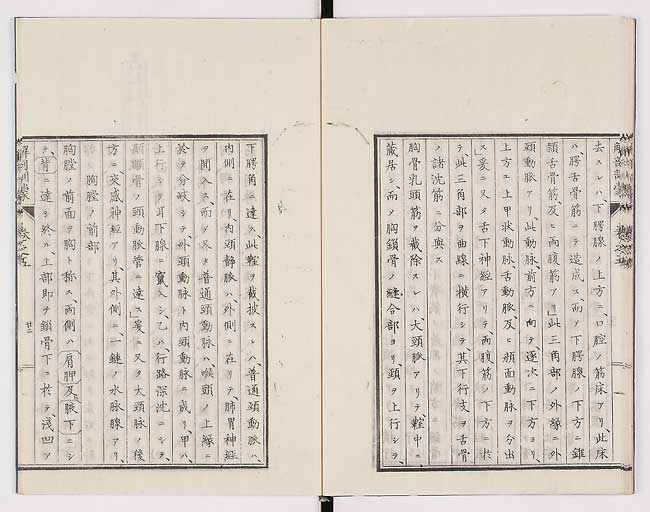 去スレハ、下腭腺ノ上方ニ、口腔ノ筋床アリ、此床
ハ、腭舌骨筋ニテ造成ス、而ヲ下腭腺ノ下方ニ、錐
頚舌骨筋、及ヒ両腹筋アリ」此三角部ノ外縁ニ外
頚動脈アリ、此動脈、前方ニ向テ、逐次ニ下方ヨリ、
上方エ上甲状動脈舌動脈、及ヒ顔面動脈ヲ分出
ス」爰ニ又タ舌下神経アリテ、両腹筋ノ下方ニ於
テ、此三角部ヲ曲線ニ横行シテ、其下行支ヲ舌骨
ノ諸沈筋ニ分與ス
胸骨乳頭筋ヲ截除スレハ、大頚脈アリテ、鞘中ニ
蔵居シ、而ヲ胸鎖骨ノ縫合部ヨリ、頚ヲ上行シテ、
下腭角ニ達ス、此鞘ヲ截披スレハ、普通頚動脈ハ、
内側ニ在リ、内頚静脈ハ、外側ニ在リテ、肺胃神経
ヲ間入ス、而ヲ尽ク普通頚動脈ハ、喉頭ノ上縁ニ
於テ分岐シテ、外頚動脈ト内頚動脈ニ成リ、甲ハ
上行シテ耳下腺ニ竄入シ、乙ハ行路深沈ニシテ、
顳顬骨ノ頚動脈管ニ達ス」爰ニ又タ大頚脈ノ後
方ニ、交感神経アリ、其外側ニ、一鏈ノ水脈腺アリ、
胸膛ノ前部
胸膛ノ前面ヲ胸ト称ス、両側ハ肩胛及腋下ニシ
テ、背ニ達シ終ル、上部即チ鎖骨下ニ於テ、浅凹ア
解剖訓蒙
巻之五
廿二